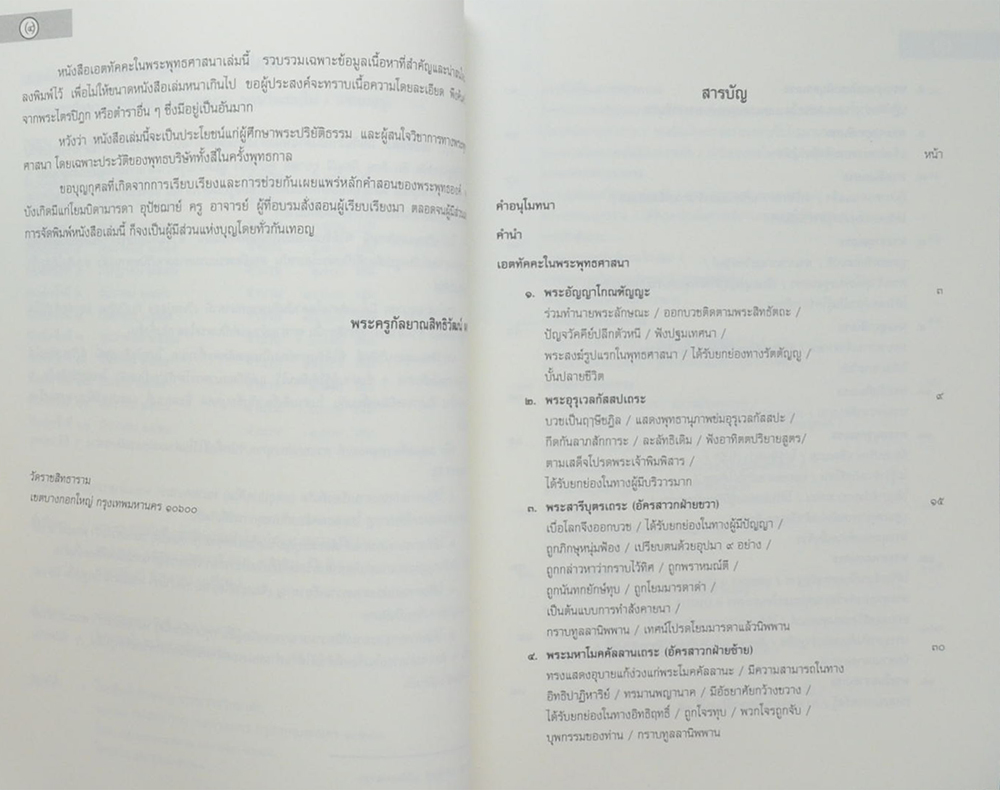 (๔)
หนังสือเอตทัคคะในพระพุทธศาสนาเล่มนี้ รวบรวมเฉพาะข้อมูลเนื้อหาที่สำคัญและน่าสนใจ
ลงพิมพ์ไว้ เพื่อไม่ให้ขนาดหนังสือเล่มหนาเกินไป ขอผู้ประสงค์จะทราบเนื้อความโดยละเอียด
จากพระไตรปิฎก หรือตำราอื่น ๆ ซึ่งมีอยู่เป็นอันมาก
หวังว่า หนังสือเล่มนี้จะเป็นประโยชน์แก่ผู้ศึกษาพระปริยัติธรรม และผู้สนใจวิชาการทาง
ศาสนา โดยเฉพาะประวัติของพุทธบริษัททั้งสี่ในครั้งพุทธกาล
ขอบุญกุศลที่เกิดจากการเรียบเรียงและการช่วยกันเผยแพร่หลักคำสอนของพระพุทธองค์
บังเกิดมีแก่โยมบิดามารดา อุปัชฌาย์ ครู อาจารย์ ผู้ที่อบรมสั่งสอนผู้เรียบเรียงมา ตลอดจนผู้มีส่วน
การจัดพิมพ์หนังสือเล่มนี้ ก็จงเป็นผู้มีส่วนแห่งบุญโดยทั่วกันเทอญ
พระครูกัลยาณสิทธิวัฒน์
วัดราชสิทธาราม
เขตบางกอกใหญ่ กรุงเทพมหานคร ๑๐๖๐๐
สารบัญ
หน้า
คำอนุโมทนา
คำนำ
เอตทัคคะในพระพุทธศาสนา
๑. พระอัญญาโกณฑัญญะ ๓
ร่วมทำนายพระลักษณะ / ออกบวชติดตามพระสิทธัตถะ /
ปัญจวัคคีย์ปลีกตัวหนี / ฟังปฐมเทศนา /
พระสงฆ์รูปแรกในพุทธศาสนา / ได้รับยกย่องทางรัตตัญญู /
บั้นปลายชีวิต
๒. พระอุรุเวลกัสสปเถระ ๙
บวชเป็นฤๅษีชฎิล / แสดงพุทธานุภาพข่มอุรุเวลกัสสปะ /
กีดกันลาภสักการะ / ละลัทธิเดิม / ฟังอาทิตตปริยายสูตร/
ตามเสด็จโปรดพระเจ้าพิมพิสาร /
ได้รับยกย่องในทางผู้มีบริวารมาก
๓. พระสารีบุตรเถระ (อัครสาวกฝ่ายขวา) ๑๕
เบื่อโลกจึงออกบวช / ได้รับยกย่องในทางผู้มีปัญญา /
ถูกภิกษุหนุ่มฟ้อง / เปรียบตนด้วยอุปมา ๙ อย่าง /
ถูกกล่าวหาว่ากราบไว้ทิศ / ถูกพราหมณ์ตี /
ถูกนันทกยักษ์ทุบ / ถูกโยมมารดาด่า /
เป็นต้นแบบการทำสังคายนา /
กราบทูลลานิพพาน / เทศน์โปรดโยมมารดาแล้วนิพพาน
๔. พระมหาโมคคัลลานเถระ (อัครสาวกฝ่ายซ้าย) ๓๐
ทรงแสดงอุบายแก้ง่วงแก่พระโมคคัลลานะ / มีความสามารถในทาง
อิทธิปาฏิหาริย์ / ทรมานพญานาค / มีอัธยาศัยกว้างขวาง /
ได้รับยกย่องในทางอิทธิฤทธิ์ / ถูกโจรทุบ / พวกโจรถูกจับ /
บุพกรรมของท่าน / กราบทูลลานิพพาน